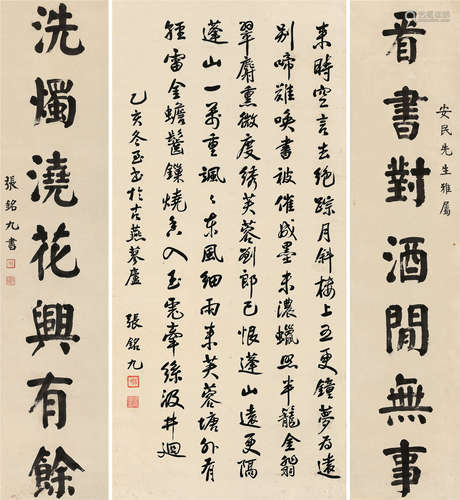 看書對酒閒無事
安民先生雅屬
來時空言去絕踪月斜樓上五更鐘夢為遠
別啼難喚書被催成墨未濃蠟照半籠金翡
翠麝熏微度綉芙蓉劉郎已恨蓬山遠更隔
蓬山一萬重颯〻東風細雨來芙蓉塘外有
輕雷金蟾齧鏁燒香入玉虎牽絲汲井迴
乙亥冬至書於古燕蓼廬 張銘九
洗燭澆花興有餘
張銘九書